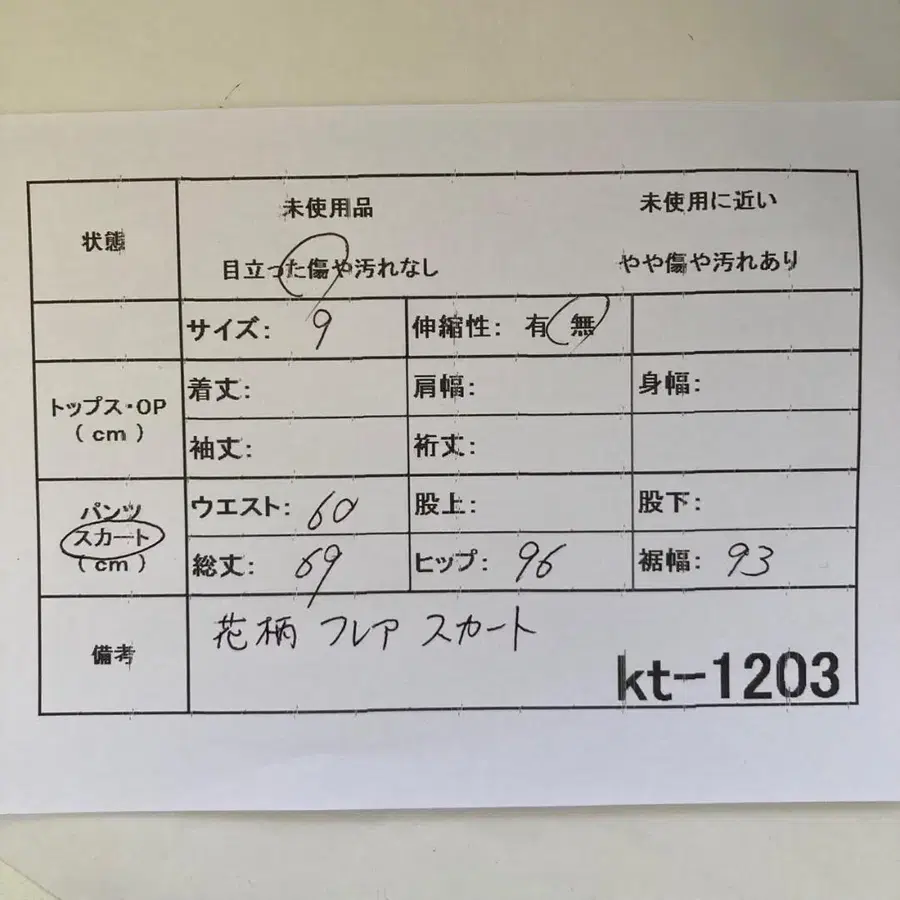 状態
未使用品 未使用に近い
目立った傷や汚れなし やや傷や汚れあり
サイズ: 9 伸縮性: 有 無
トップス・OP
(cm)
着丈: 肩幅: 身幅:
袖丈: 裄丈:
パンツ
スカート
(cm)
ウエスト: 60 股上: 股下:
総丈: 69 ヒップ: 96 裾幅: 93
備考
花柄 フレア スカート
kt-1203